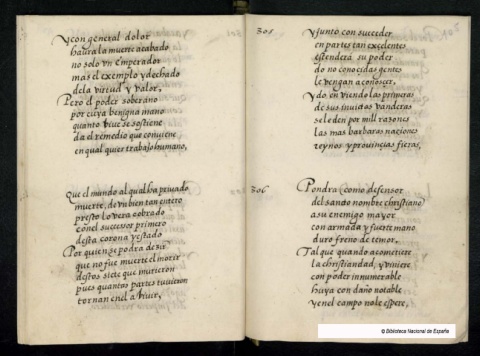 Y con general dolor
haura la muerte acabado
no solo vn Emperador
mas el exemplo y dechado
dela virtud y valor.
Pero el poder soberano
por cuya benigna mano
quanto viue se sostiene
da el remedio que conuiene,
en qual quier trabajo humano,
Que el mundo al qual ha priuado
muerte, de vn bien tan entero
presto lo vera cobrado
con el successor primero
desta corona y estado
Por quien se podra dezir
que no fue muerte el morir
destos siete que murieron
pues quantas partes tuuieron
tornan en el a biuir,
305
Y junto con succeder
en partes tan excelentes
estendera su poder
do no conocidas gentes
le vengan a conoscer.
Y do en viendo las primeras
de sus inuictas vanderas
se le den por mill razones
las mas barbaras naciones
reynos y prouincias fieras,
306
Pondra, como defensor
del sancto nombre christiano
a su enemigo mayor
con armada y fuerte mano
duro freno de temor.
Tal que quando acometiere
la christiandad, y viniere
con poder innumerable
huya con daño notable
y en el campo no le espere,
© Biblioteca Nacional de España